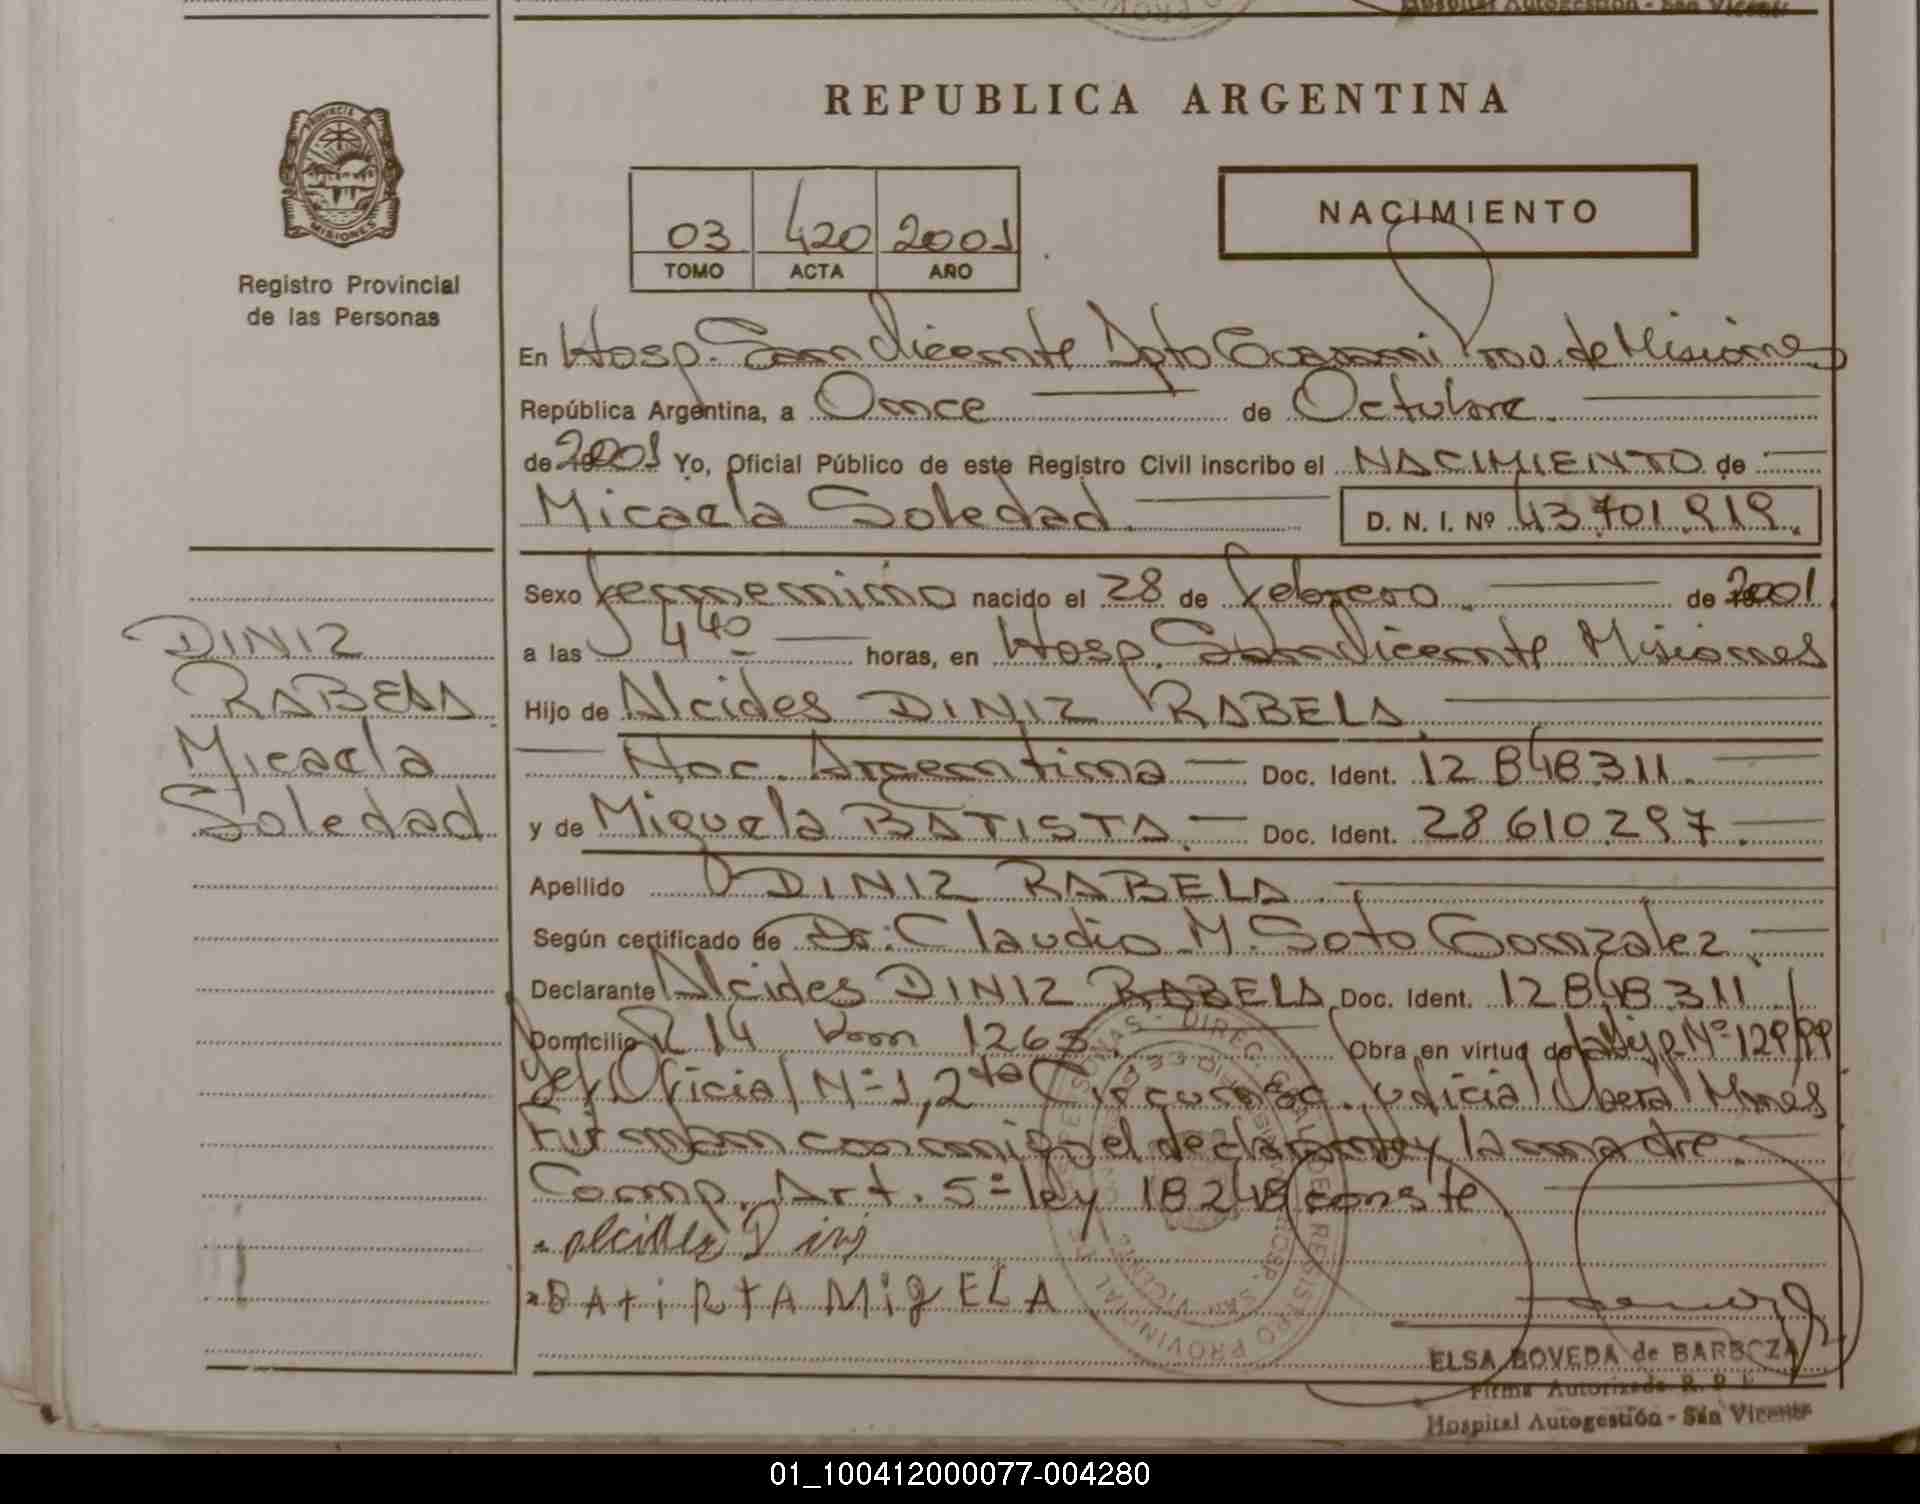 Hospital Autogestión - San Vicente
REPUBLICA ARGENTINA
PROVINCIA DE
MISIONES
Registro Provincial
de las Personas
03 420 2001
TOMO ACTA AÑO
NACIMIENTO
En Hosp. San Vicente Dpto Guarani Prov. de Misiones
República Argentina, a Once de Octubre.
de 2001 Yo, Oficial Público de este Registro Civil inscribo el NACIMIENTO de
Micaela Soledad. D. N. I. Nº 43.701.919.
Sexo femenino nacido el 28 de febrero. de 2001
a las 4 40 horas, en Hosp. San Vicente Misiones
Hijo de Alcides DINIZ RABELA.
Nac. Argentina Doc. Ident. 12 848 311.
y de Miguela BATISTA. Doc. Ident. 28 610 297.
Apellido DINIZ RABELA.
Según certificado de Dr. Claudio M. Soto Gonzalez
Declarante Alcides DINIZ RABELA Doc. Ident. 12 848 311
Domicilio R 14 Km 1265. Obra en virtud de Nº 129/99
Oficial Nº 1, 2da Circunsc. Judicial Oberá Mnes
Firman conmigo el declarante y la madre.
Comp. Art. 5º ley 18248 conste
DINIZ
RABELA
Micaela
Soledad
alcides Dini
BAtiRtA MigELA
ELSA BOVEDA de BARBOZA
Firma Autorizada R. P. P.
Hospital Autogestión - San Vicente
01_100412000077-004280